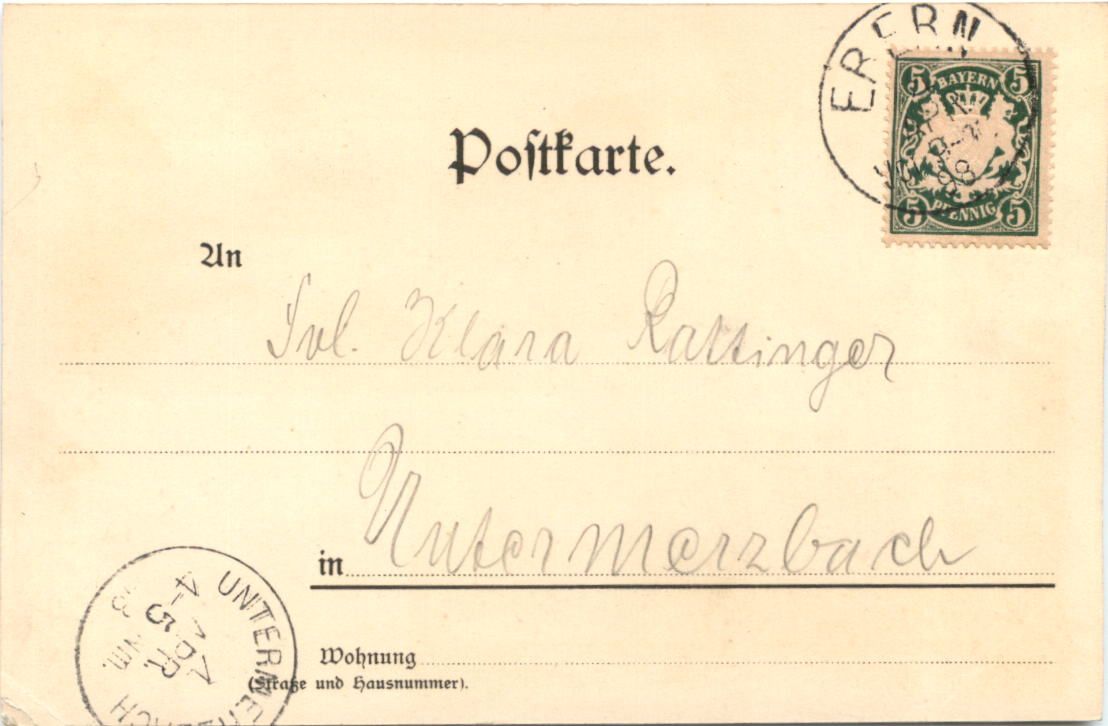 EBERN
5 BAYERN 5
5 PFENNIG 5
Postkarte.
An
Frl. Klara Rattinger
in Untermerzbach
Wohnung
(Straße und Hausnummer).
UNTERMERZBACH
4-5 Nm.
4 APR